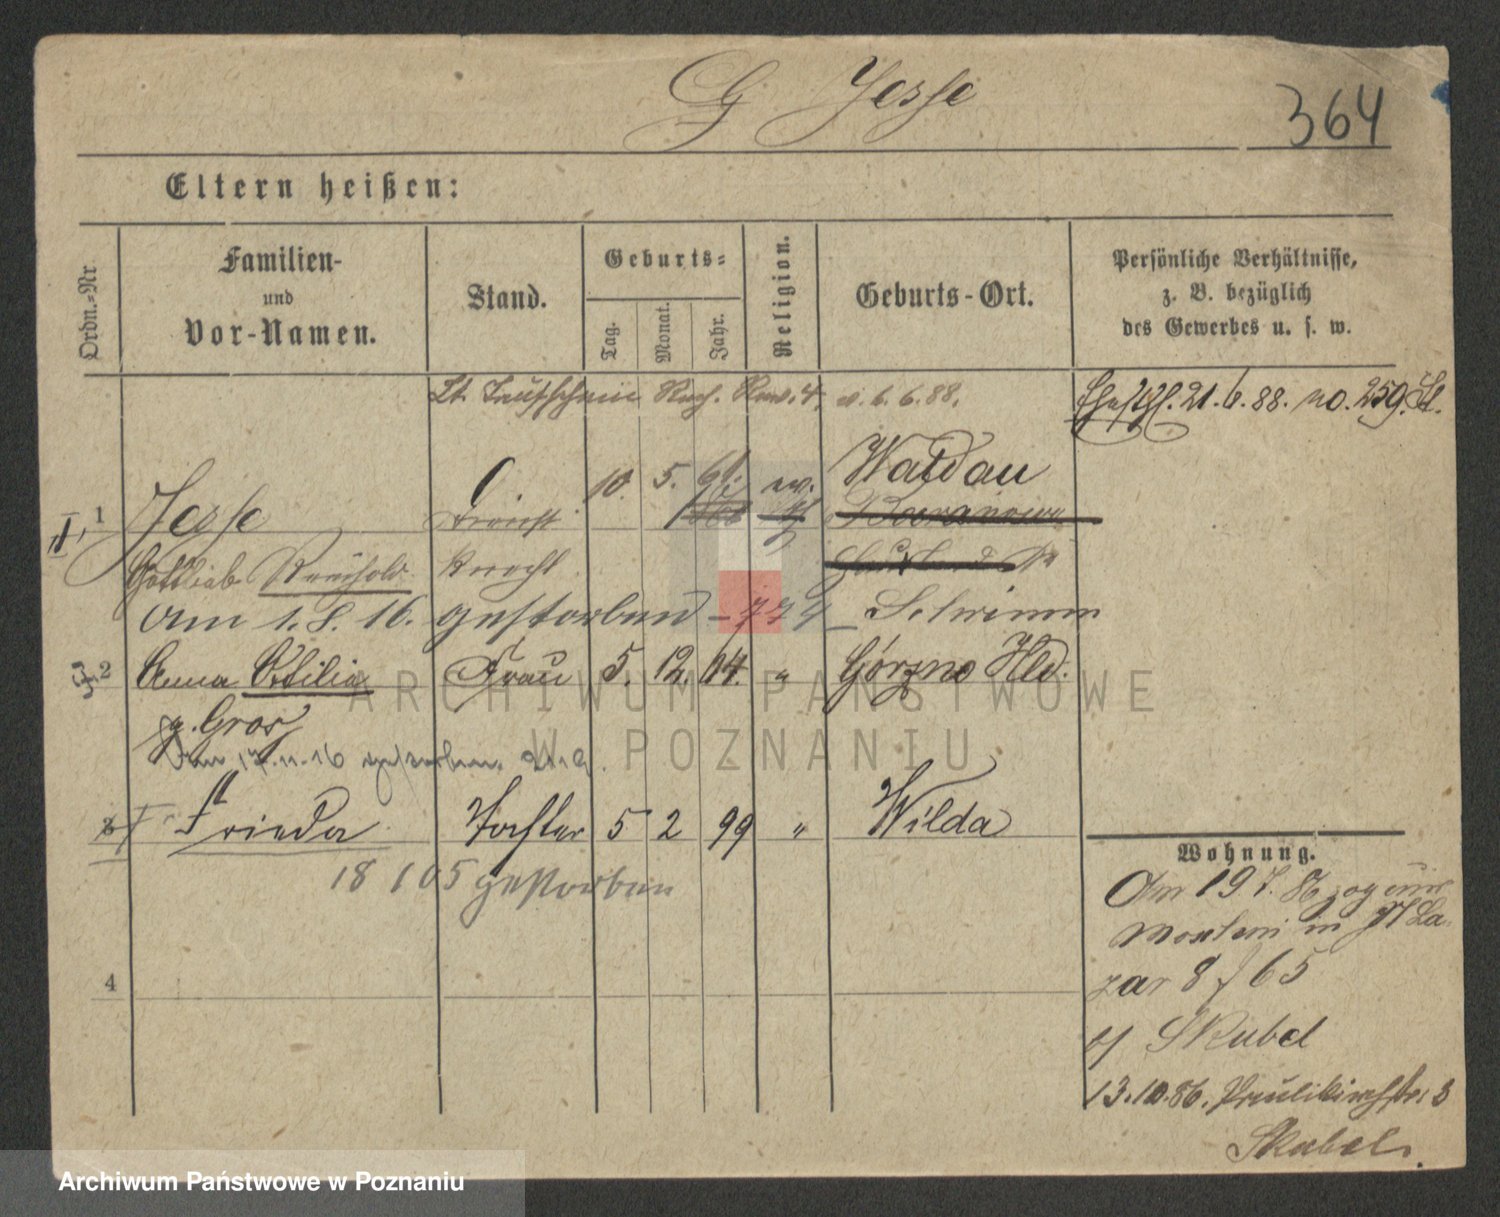 G Jesse
364
Eltern heißen:
Ordn.-Nr.
Familien- und Vor-Namen.
Stand.
Geburts-
Tag.
Monat.
Jahr.
Religion.
Geburts-Ort.
Persönliche Verhältnisse,
z. B. bezüglich
des Gewerbes u. s. w.
6.6.88.
21.6.88. no. 259. St.
1 Jesse 10. 5. 61. ev. Waldau
Gottlieb Reinhold Knecht
am 1. 8. 16. gestorben - 774 - Schrimm
2 Anna Ottilie Frau 5. 12. 64. " Górzno Hld.
g. Gros
17.11.16 gestorben
3 Frieda Tochter 5 2 99 " Wilda
18 1 05 gestorben
4
Wohnung.
Am 19 7. 86 zog
in St La
zar 8 f 65
b/ Skubel
13.10.86. Paulikirchstr. 3
Skubel.
ARCHIWUM PAŃSTWOWE
W POZNANIU
Archiwum Państwowe w Poznaniu